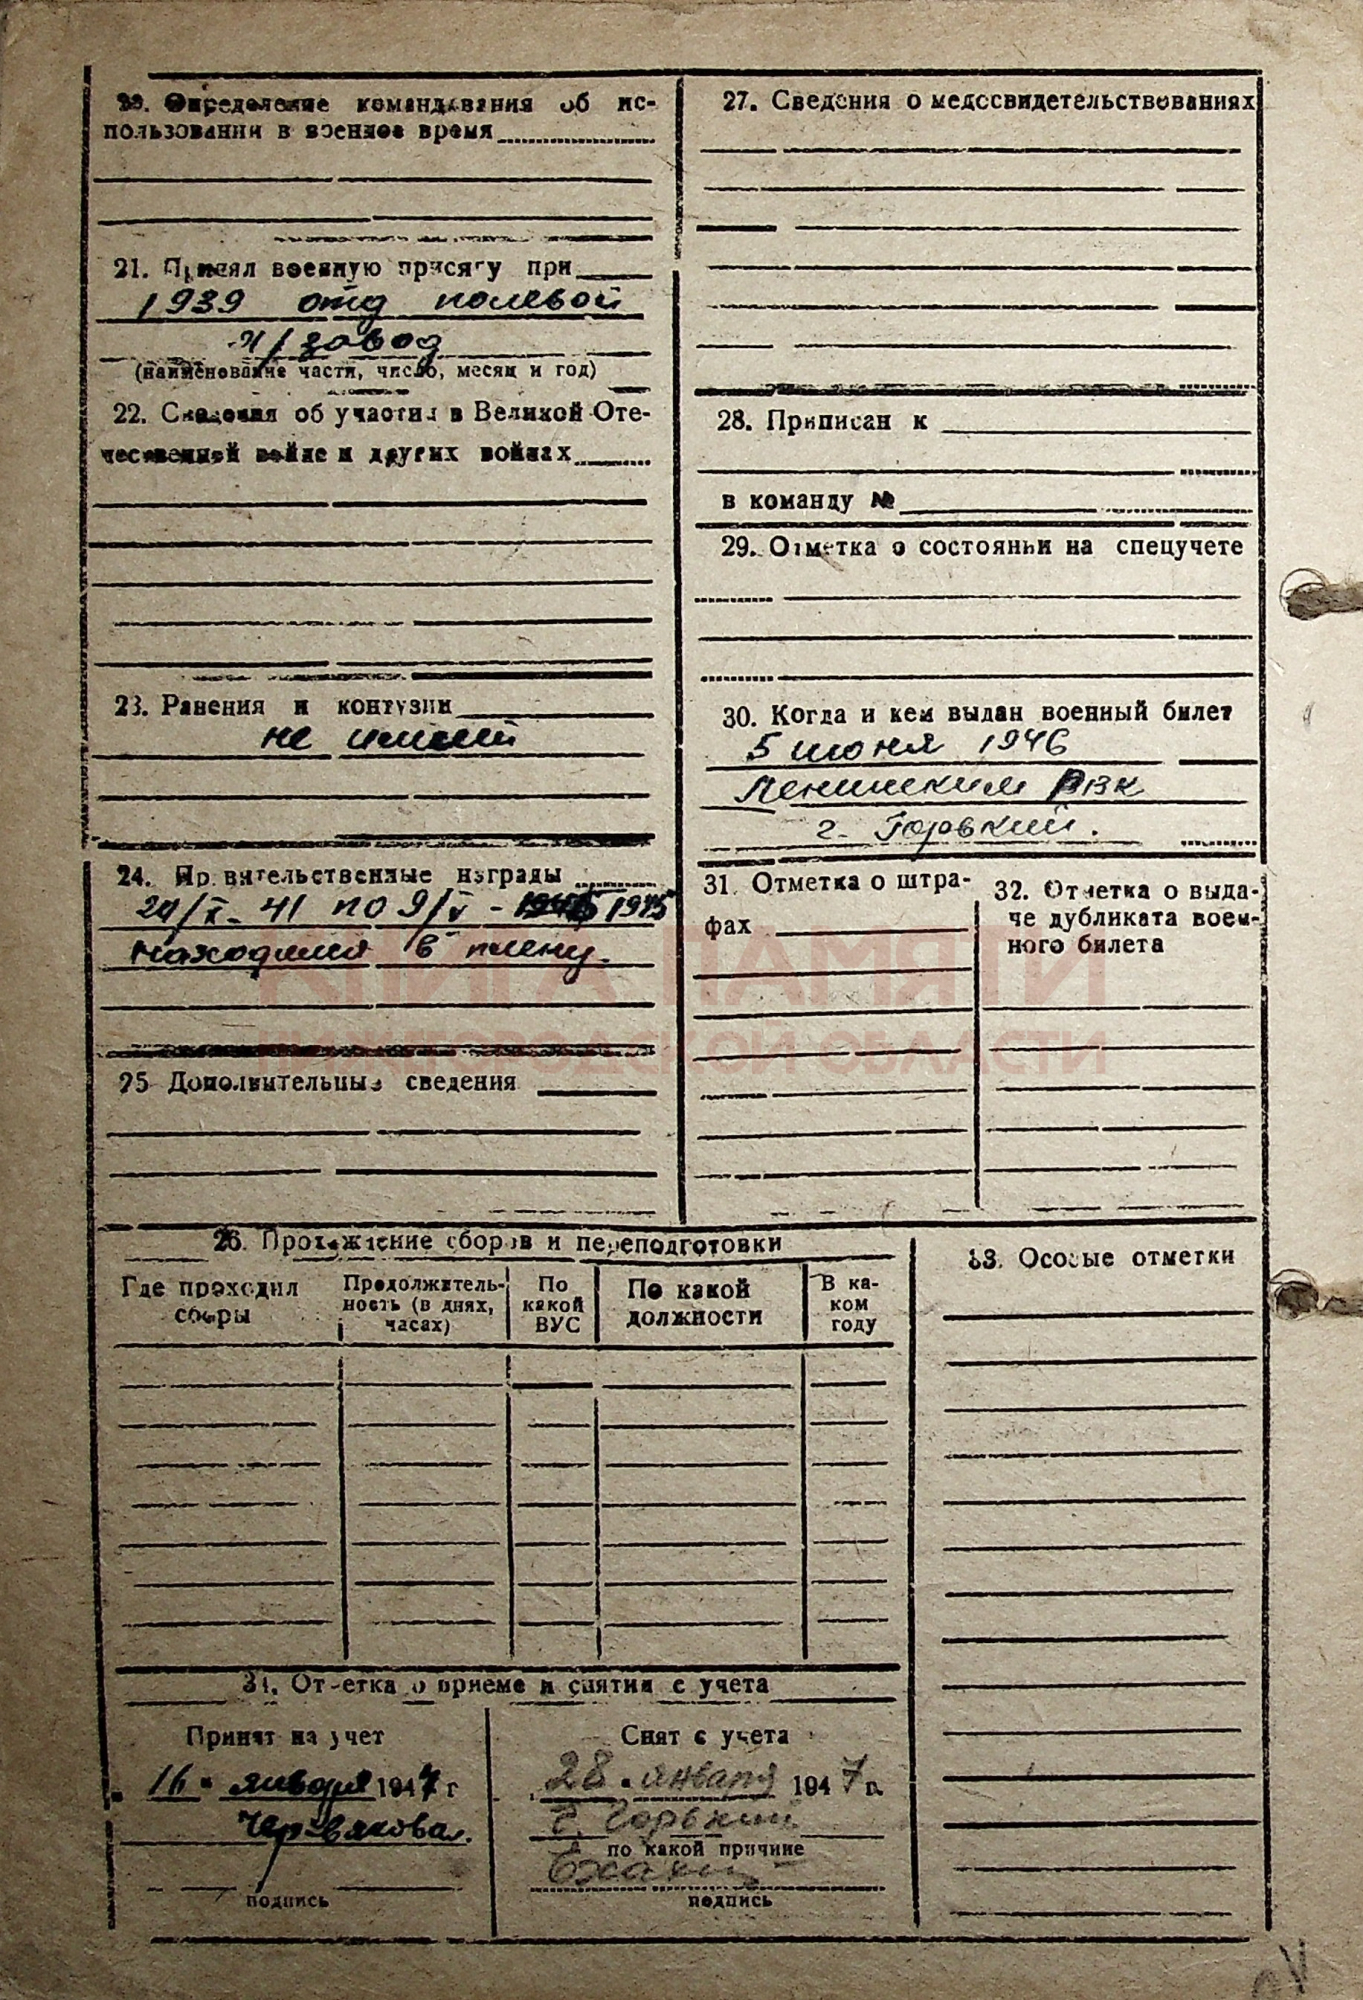 20. Определение командования об ис-
пользовании в военное время
21. Принял военную присягу при
1939 отд полевой
х/завод
(наименование части, число, месяц и год)
22. Сведения об участии в Великой Оте-
чественной войне и других войнах
23. Ранения и контузии
не имеет
24. Правительственные награды
по 9/V - 1945
находился в плену.
25 Дополнительные сведения
27. Сведения о медосвидетельствованиях
28. Приписан к
в команду №
29. Отметка о состоянии на спецучете
30. Когда и кем выдан военный билет
5 июня 1946
Ленинским РВК
г. Горький.
31. Отметка о штра-
фах
32. Отметка о выда-
че дубликата воен-
ного билета
КНИГА ПАМЯТИ
НИЖЕГОРОДСКОЙ ОБЛАСТИ
26. Прохождение сборов и переподготовки
Где проходил
сборы
Продолжитель-
ность (в днях,
часах)
По
какой
ВУС
По какой
должности
В ка-
ком
году
33. Особые отметки
34. Отметка о приеме и снятии с учета
Принят на учет
16 " января 1947 г
Червякова
подпись
Снят с учета
28 " января 1947 г.
г. Горький
по какой причине
подпись